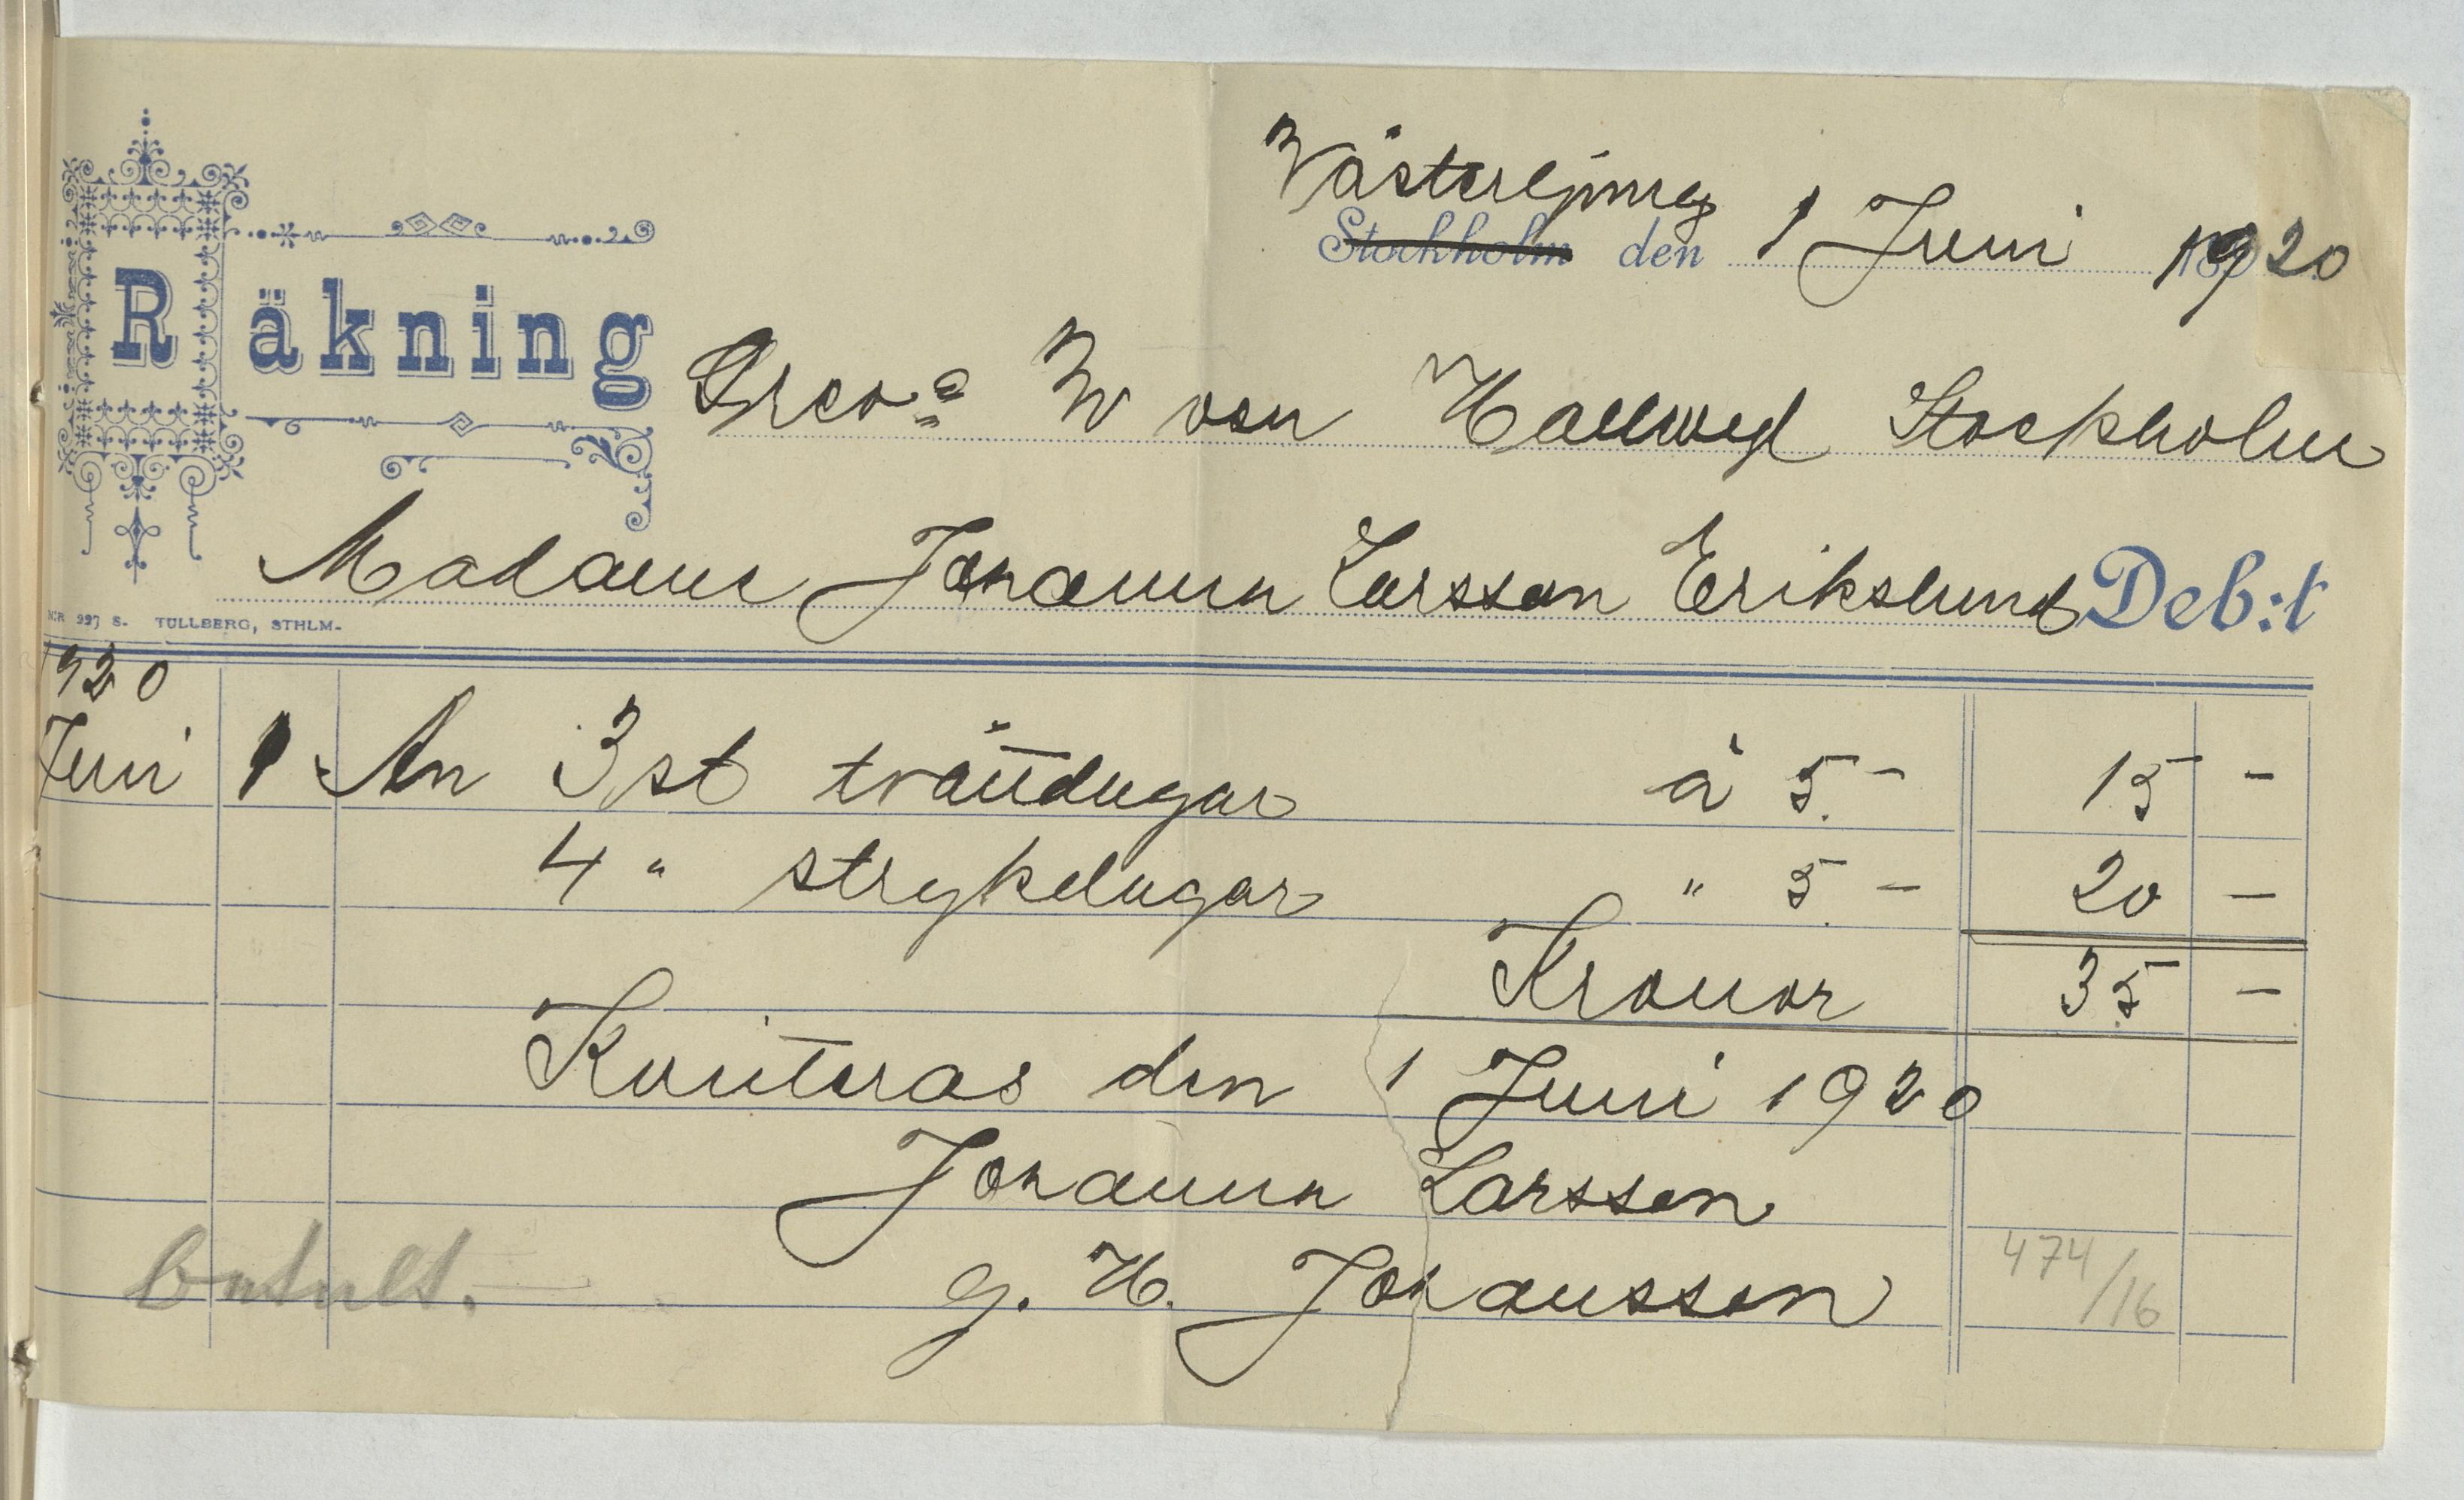 Västerljung
Stockholm den 1 Juni 1920
Räkning
Grev: W von Hallwyl Stockholm
Madame Johanna Larsson Erikslund Deb:t
N:R 997 S. TULLBERG, STHLM-
920
Juni 1 An 3 st tvättdugar à 5.- 15 -
4 " strykdugar " 5.- 20 -
Kronor 35 -
Kvitteras den 1 Juni 1920
Johanna Larsson
g. H. Johansson
betalt.
474/16